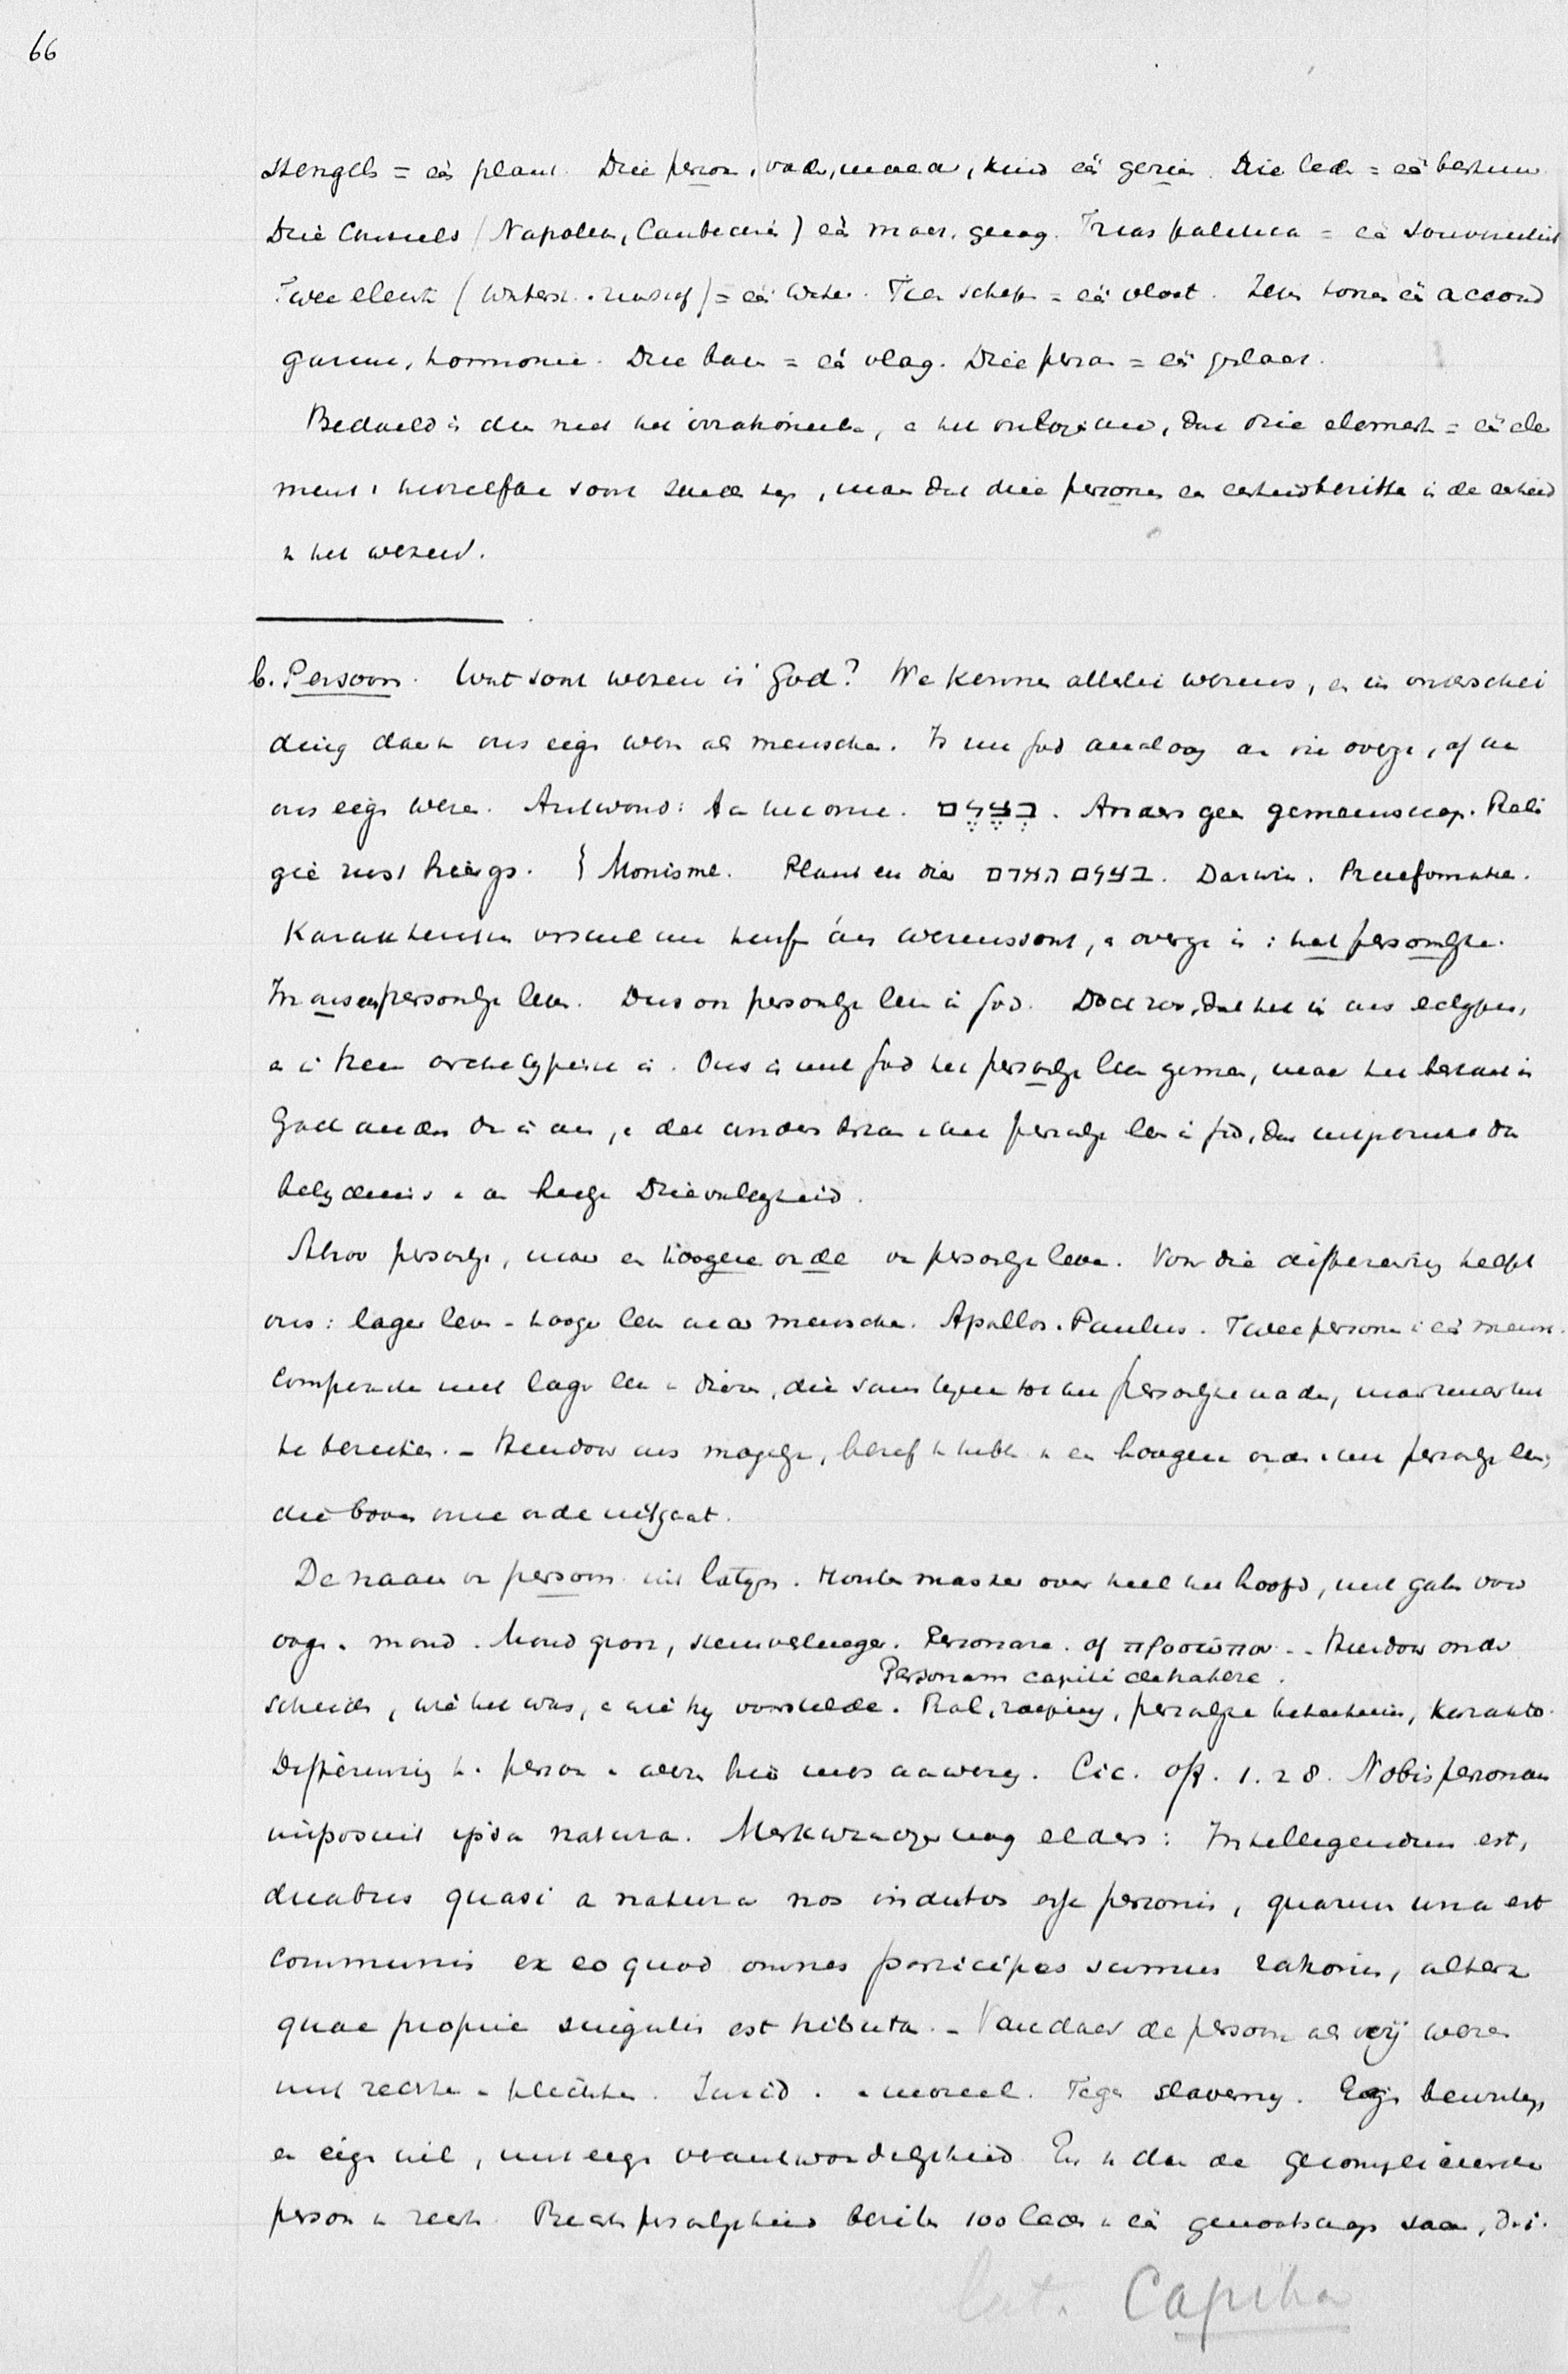 66
stengels = één plant. Drie person, vader, moeder, kind één gezin. Drie leden = één bestuur
Drie Consuls (Napoleon, Cambacérès) één gezag. Trias politica = één souvereiniteit
Twee element (waterst. zuurstof) = één water. Tien schepen = één vloot. Zeven tonen één accoord
harmonie. Drie banen = één vlag. Drie person = één
Bedoeld is dus niet het irrationeele, en het onlogische, dat drie elementen = één ele
ment hetzelfde soort zouden zijn, maar dat drie personen een eenheid bezitten in de eenheid
van het wezen.
b. Persoon. Wat soort wezen is God? We kennen allerlei wezens, en in onderschei
ding daarvan ons eigen wezen als menschen. Is nu God analoog aan die overige, of aan
ons eigen wezen. Antwoord: Aan het onze. בצלם. Anders geen gemeenschap. Reli
gie rust hierop. Monisme. Plant en dier בצלם האדם. Darwin. Praeformatie.
Karakteristiek verschil tusschen wezenssoort, en overige is: het persoonlijke.
In ons een persoonlijk leven. Dus ook persoonlijk leven in God. Doch zoo, dat het in ons ectypisch,
en in Hem archetypisch is. Ons is met God het persoonlijk leven gemeen, maar het bestaat in
God anders dan in ons, en dat anders bestaan van het persoonlijk leven in God, dat is de
belydenis van de heilige Drievuldigheid.
Alzoo persoonlijk, maar een hoogere orde van persoonlijk leven. Voor die differeering helpt
ons: lager leven - hooger leven onder menschen. Apollos. Paulus. Twee personen in één mensch.
Comparatie met lager leven in dieren, die soms het persoonlijke naderen, maar zonder het
te bereiken. - Hierdoor ons mogelijk, besef te hebben van een hoogere orde van het persoonlijk leven,
die boven onze orde uitgaat.
De naam van persoon uit latyn. Houten masker over heel het hoofd, met gaten voor
oogen en mond. Mond groot, stemverheffing. Personare. of προσώπον. - Hierdoor onder
Personam capiti detrahere.
scheiden, wie het was, en wie hy voorstelde. Rol, roeping, persoonlijke beteekenis, karakter.
Differeering tusschen persoon en wezen hier nog aanwezig. Cic. off. 1. 28. Nobis personam
imposuit ipsa natura. Merkwaardiger nog elders: Intellegendum est,
duabus quasi a natura nos indutos esse personis, quarum una est
communis ex eo quod omnes participes sumus rationis, altera
quae proprie singulis est tributa. - Vandaar de persoon als vrij wezen
met rechten en plichten. Jurid. en moreel. Tegen slaverny. Eigen bewustzijn
en eigen wil, met eigen verantwoordelijkheid. En dan de gecompliceerde
persoon in recht. Rechtspersoonlijkheid bezitten 100 leden in één genootschap saam, d.i.
lat. Capita